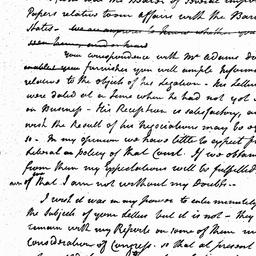 Papers relative to our affairs with the Barb
States.
Your correspondence with Mr Adams do
you furnishes you will ample Informa
relative to the object of his Legation. His Letters
were dated at a time when he had not yet
on Business. His Reception is satisfactory, an
wish the Result of his Negociations may be eq
so. In my opinion we have little to expect fr
liberal policy of that Court. If we obtain
from them my expectations will be fulfilled
of that I am not without my Doubts.
I wish it was in my power to enter minutely
the Subjects of your Letters but it is not - they
remain with my Reports on some of them un
Consideration of Congress. so that at present